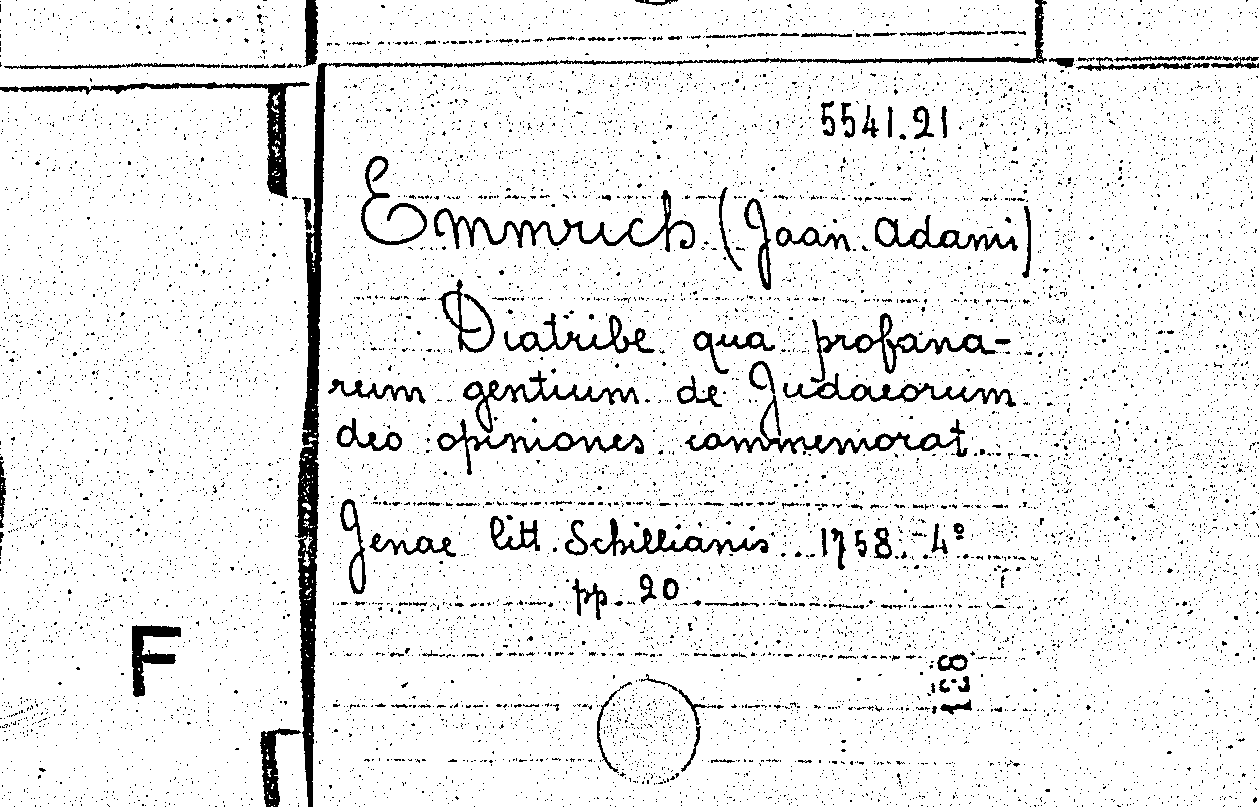 5541.21
Emmrich (Joan. Adami)
Diatribe qua profana-
rum gentium de Judaeorum
deo opiniones commemorat.
Jenae litt. Schillianis 1758 4º
pp. 20
F